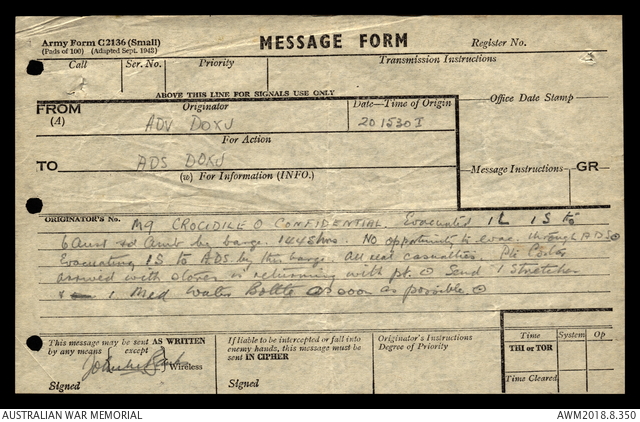 Army Form C2136 (Small)
(Pads of 100) (Adapted Sept. 1943)
MESSAGE FORM
Register No.
Call
Ser. No.
Priority
Transmission Instructions
ABOVE THIS LINE FOR SIGNALS USE ONLY
FROM
(A)
Originator
ADV DOXJ
Date—Time of Origin
201530 I
Office Date Stamp
For Action
TO
ADS DOXJ
(w) For Information (INFO.)
Message Instructions
GR
ORIGINATOR'S No.
M9 CROCIDILE O CONFIDENTIAL. Evacuated 1L 1S to
6 Aust Amb by barge. 1445 hrs. No opportunity to evac. through ADS
Evacuating 1S to ADS by this barge. All casualties. Pte
arrived with is returning with pt. Send 1 stretcher
1 Med Water Bottle as soon as possible
This message may be sent AS WRITTEN
by any means except Wireless
Signed
If liable to be intercepted or fall into
enemy hands, this message must be
sent IN CIPHER
Signed
Originator's Instructions
Degree of Priority
Time
System
Op
THI or TOR
Time Cleared
AUSTRALIAN WAR MEMORIAL
AWM2018.8.350